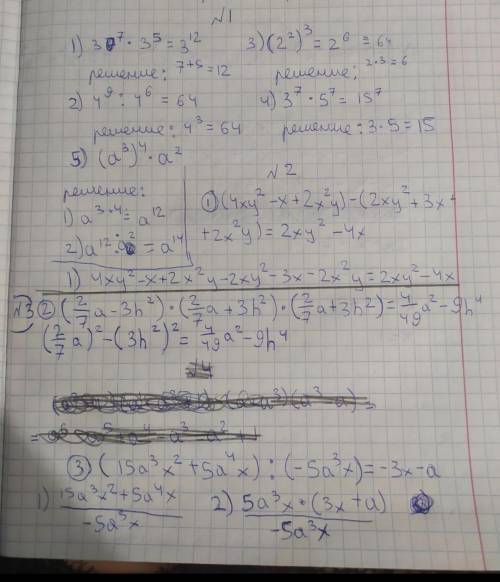 №1
1) 3⁷ · 3⁵ = 3¹²   3) (2²)³ = 2⁶ = 64
решение: 7+5=12   решение: 2·3=6
2) 4⁹ : 4⁶ = 64   4) 3⁷ · 5⁷ = 15⁷
решение: 4³ = 64   решение: 3·5=15
5) (a³)⁴ · a²
решение:
1) a³·⁴ = a¹²
2) a¹² : a² = a¹⁴
№2
① (4xy² - x + 2x²y) - (2xy² + 3x +
+ 2x²y) = 2xy² - 4x
1) 4xy² - x + 2x²y - 2xy² - 3x - 2x²y = 2xy² - 4x
№3 ② (2/7 a - 3h²) · (2/7 a + 3h²) · (2/7 a + 3h²) = 4/49 a² - 9h⁴
(2/7 a)² - (3h²)² = 4/49 a² - 9h⁴
③ (15a³x² + 5a⁴x) : (-5a³x) = -3x - a
1) 15a³x² + 5a⁴x / -5a³x   2) 5a³x · (3x + a) / -5a³x